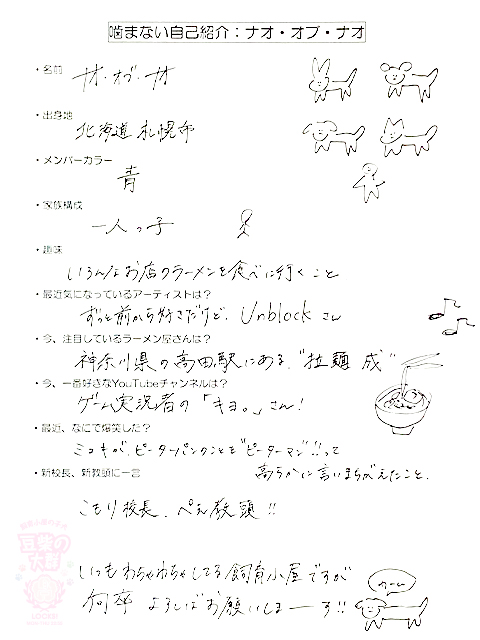 噛まない自己紹介：ナオ・オブ・ナオ
・名前
ナオ・オブ・ナオ
・出身地
北海道 札幌市
・メンバーカラー
青
・家族構成
一人っ子
・趣味
いろんなお店のラーメンを食べに行くこと
・最近気になっているアーティストは？
ずっと前から好きだけど、Unblock さん
・今、注目しているラーメン屋さんは？
神奈川県の高田駅にある、"拉麺 成"
・今、一番好きなYouTubeチャンネルは？
ゲーム実況者の「キヨ。」さん！
・最近、なにで爆笑した？
ミユキが、ピーターパンのことを"ピーターマン"!!って
高らかに言いまちがえたこと、
・新校長、新教頭に一言
こもり校長、ぺえ教頭!!
いつもわちゃわちゃしてる飼育小屋ですが
何卒 よろしばお願いしまーーす!!